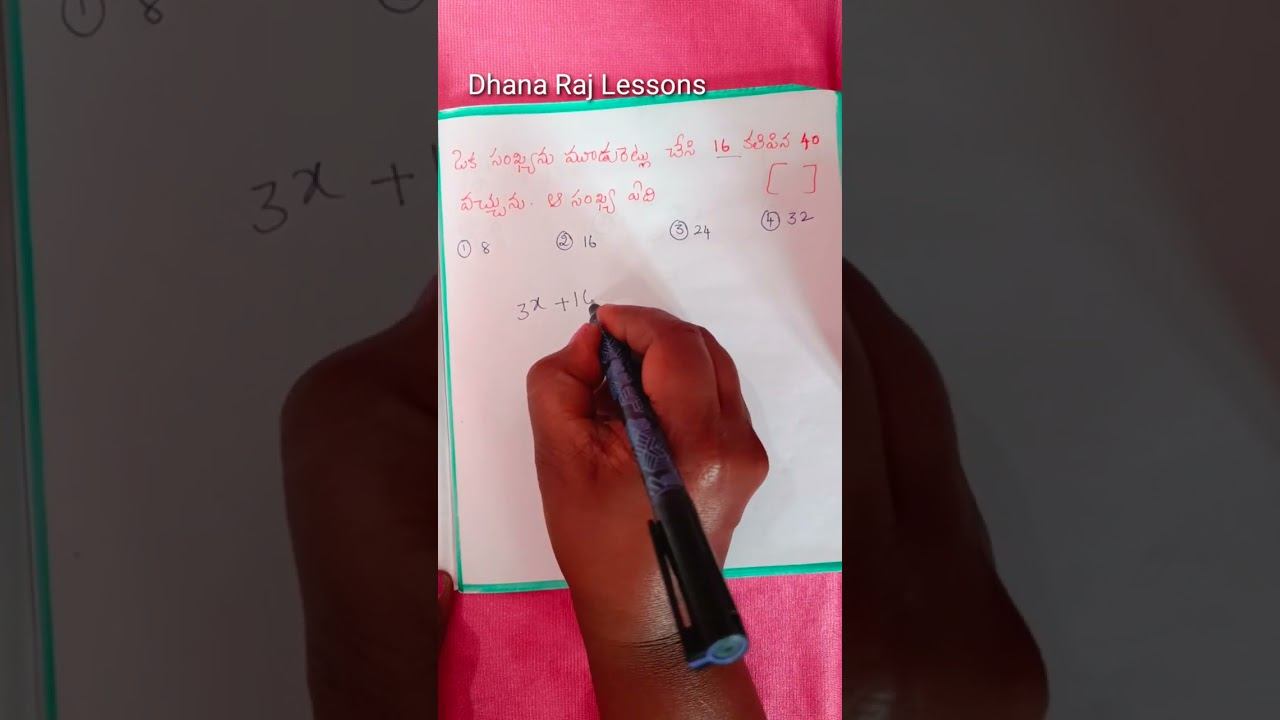 Dhana Raj Lessons
ఒక సంఖ్యను మూడురెట్లు చేసి 16 కలిపిన 40
వచ్చును. ఆ సంఖ్య ఏది [ ]
① 8 ② 16 ③ 24 ④ 32
3x + 16